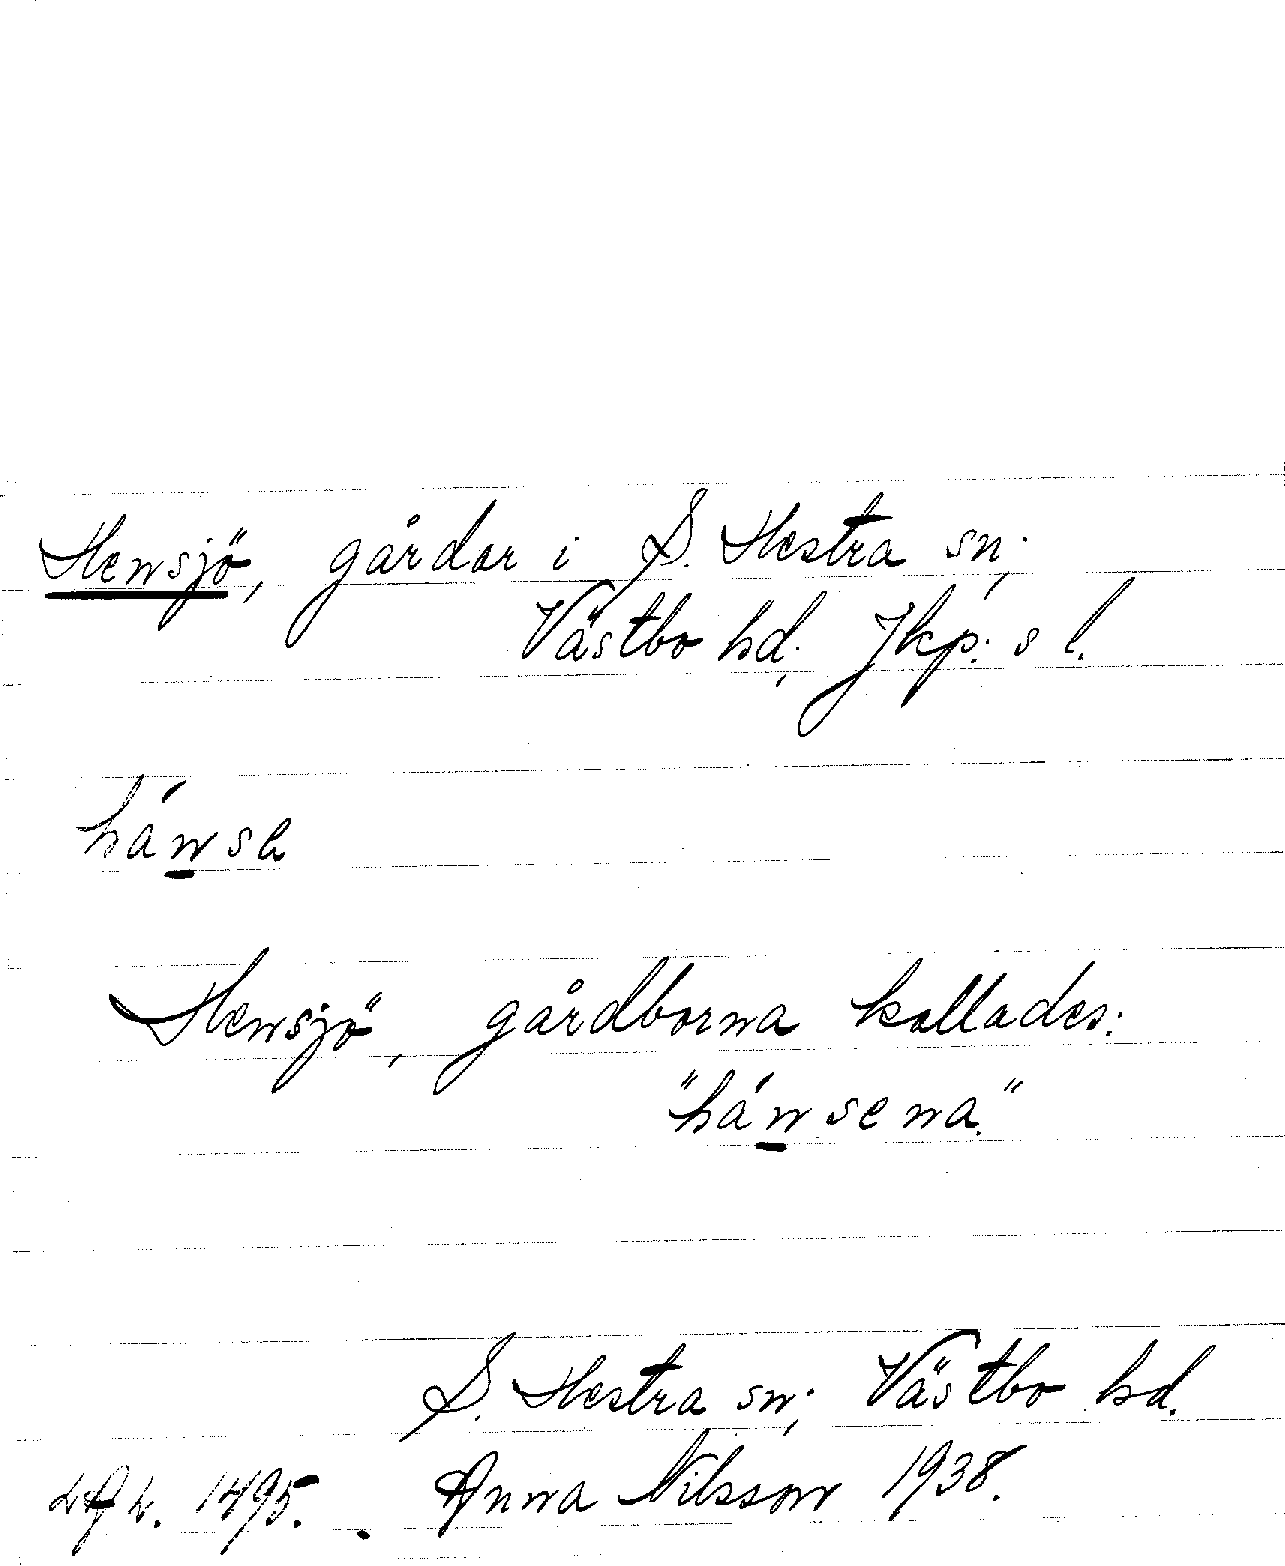 Hensjö, gårdar i S. Hestra sn;
Västbo hd; Jkp:s l.
hánse
Hensjö, gårdborna kallades:
"hánsena."
S. Hestra sn; Västbo hd.
1495. Anna Nilsson 1938.